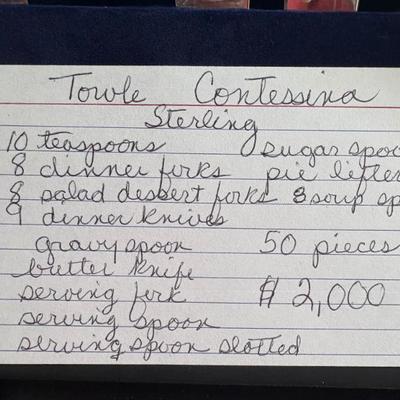 Towle Contessina
Sterling
10 teaspoons sugar spoo
8 dinner forks pie lifter
8 salad dessert forks 8 soup sp
9 dinner knives
gravy spoon 50 pieces
butter knife
serving fork $2,000
serving spoon
serving spoon slotted